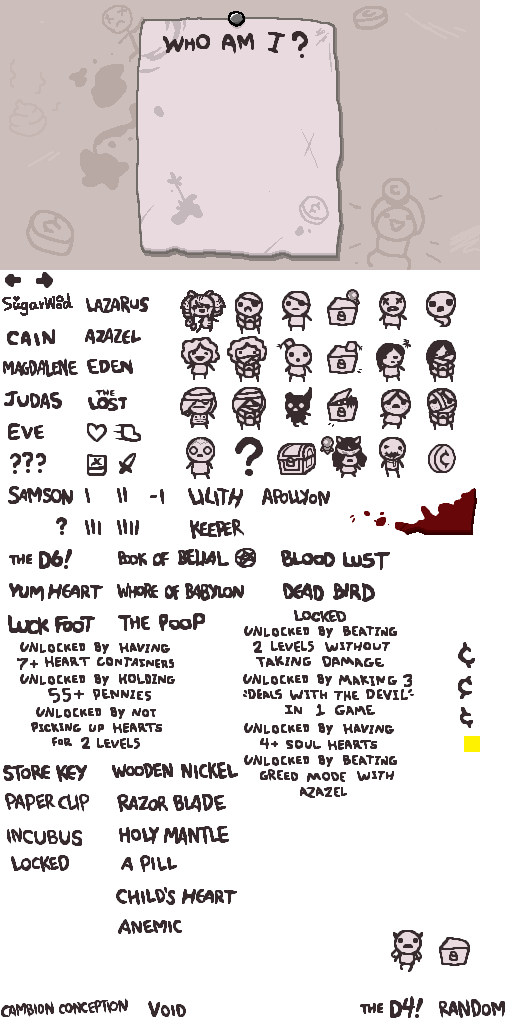 WHO AM I?
SugarWad LAZARUS
CAIN AZAZEL
MAGDALENE EDEN
JUDAS THE LOST
EVE
???
?
SAMSON I II -1 LILITH APOLLYON
? III IIII KEEPER
THE D6! BOOK OF BELIAL BLOOD LUST
YUM HEART WHORE OF BABYLON DEAD BIRD
LUCK FOOT THE POOP
LOCKED
UNLOCKED BY HAVING
7+ HEART CONTAINERS
UNLOCKED BY HOLDING
55+ PENNIES
UNLOCKED BY NOT
PICKING UP HEARTS
FOR 2 LEVELS
UNLOCKED BY BEATING
2 LEVELS WITHOUT
TAKING DAMAGE
UNLOCKED BY MAKING 3
"DEALS WITH THE DEVIL"
IN 1 GAME
UNLOCKED BY HAVING
4+ SOUL HEARTS
UNLOCKED BY BEATING
GREED MODE WITH
AZAZEL
¢
¢
¢
STORE KEY WOODEN NICKEL
PAPER CLIP RAZOR BLADE
INCUBUS HOLY MANTLE
LOCKED A PILL
CHILD'S HEART
ANEMIC
CAMBION CONCEPTION VOID THE D4! RANDOM